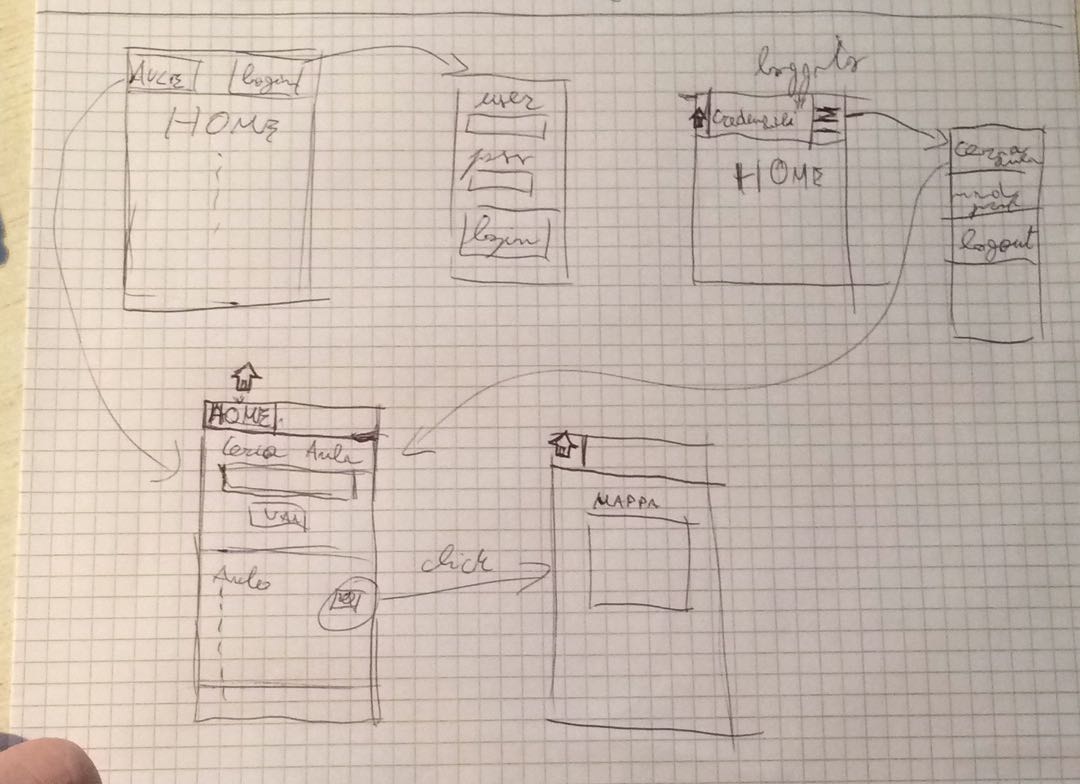 AULE login
HOME
user
psw
login
loggato
credenziali
HOME
cerca
aula
logout
HOME
Cerca Aula
VAI
Aula
click
MAPPA